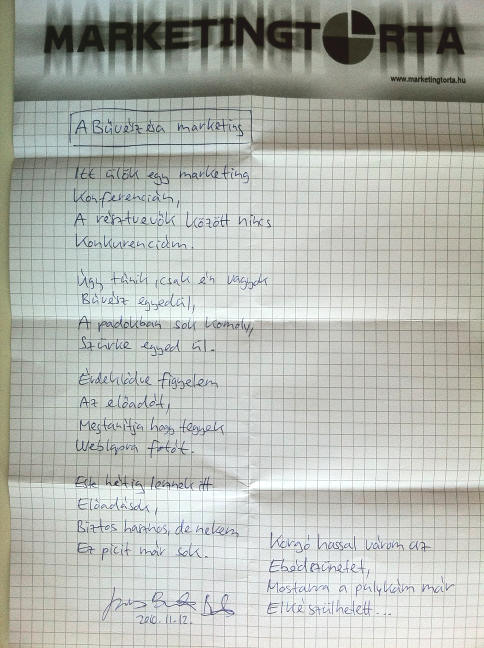 MARKETINGTORTA
www.marketingtorta.hu
A Bűvész és a marketing
Itt ülök egy marketing
Konferencián,
A résztvevők között nincs
Konkurenciám.
Úgy tűnik, csak én vagyok
Bűvész egyedül,
A padokban sok komoly,
Szürke egyed ül.
Érdeklődve figyelem
Az előadót,
Megtanítja hogy tegyek
Weblapra fotót.
Este hétig lesznek itt
Előadások,
Biztos hasznos, de nekem
Ez picit már sok.
Korgó hassal várom az
Ebédszünetet,
Mostanra a pulykám már
Elkészülhetett...
2010.11.12.